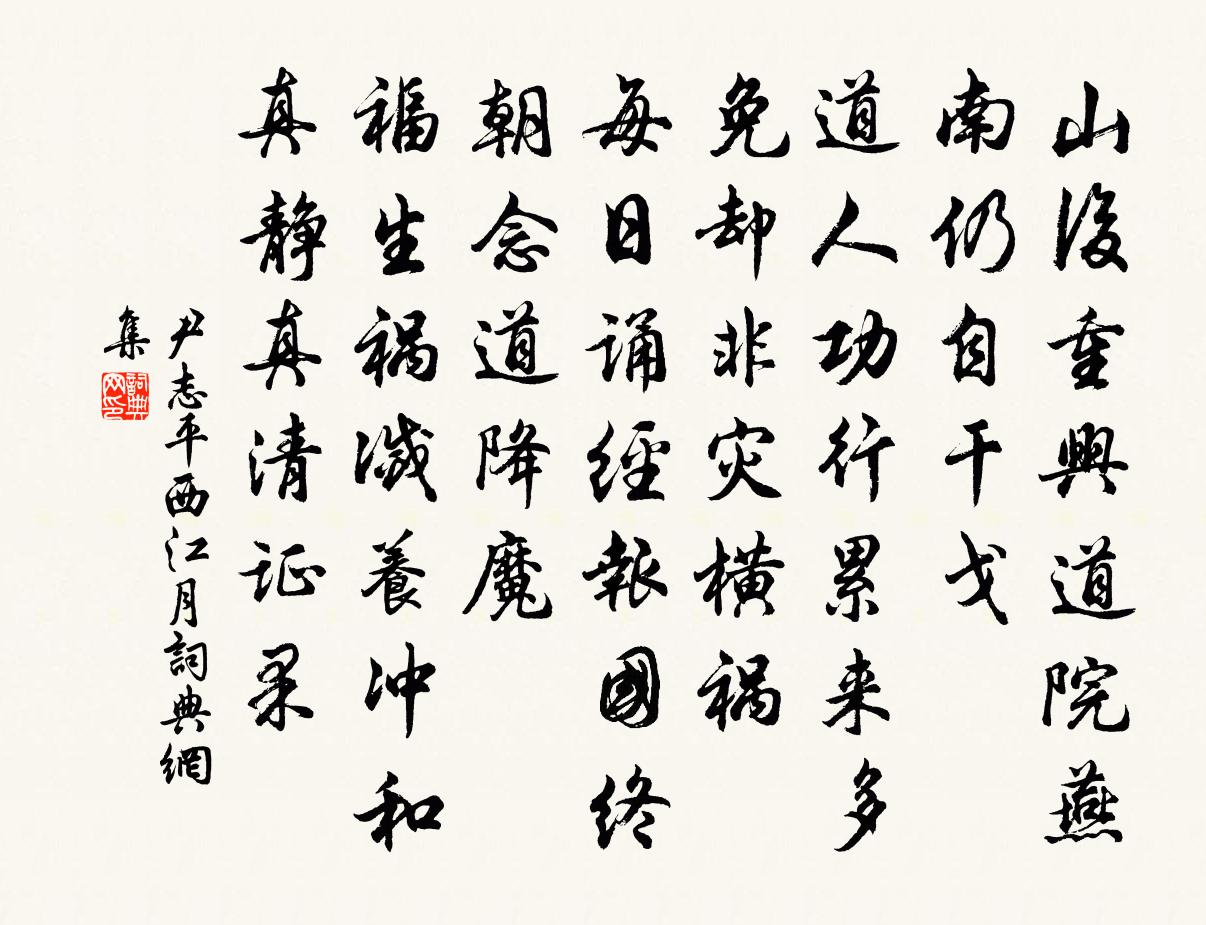 山後重興道院燕
南仍自干戈
道人功行累来多
免却非灾橫祸
每日诵經報國终
朝念道降魔
福生祸滅養冲和
真静真清证果
尹志平西江月詞典網
集
詞典网印